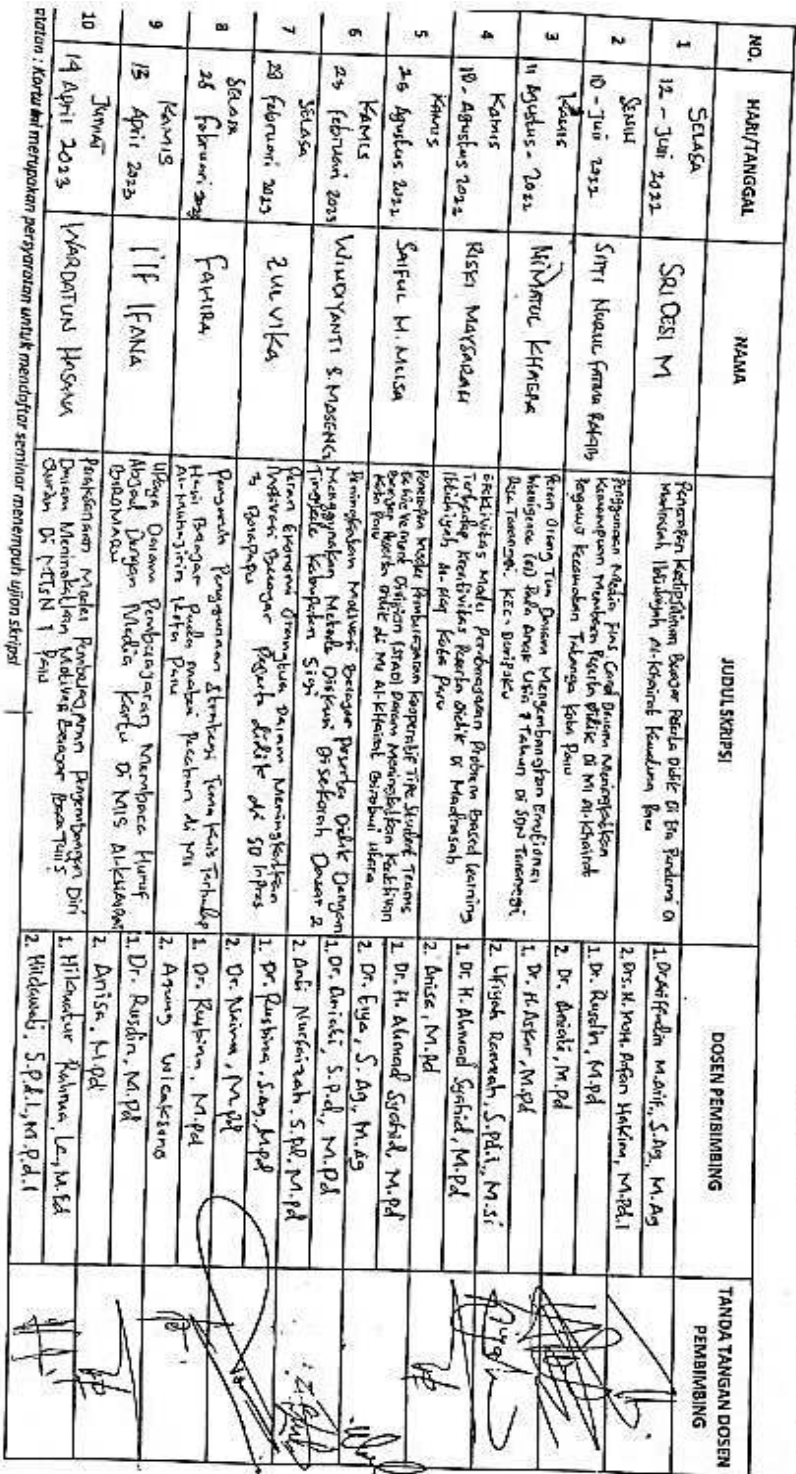 NO.
HARI/TANGGAL
NAMA
JUDUL SKRIPSI
DOSEN PEMBIMBING
TANDA TANGAN DOSEN
PEMBIMBING
1
SELASA
12 - Juli 2022
SRI DESI M
Penerapan Kedisiplinan Belajar Peserta Didik Di Era Pandemi Di
Madrasah Ibtidaiyah Al-Khairat
1. Dr. Arifuddin M. Arif, S.Ag, M. Ag
2. Drs. H. Moh. Arfan Hakim, M.Pd.I
2
SENIN
2022
SITTI NURUL FATIMA
Penggunaan Media Flas Card Dalam Meningkatkan
Kemampuan Membaca Peserta Didik Di MI Al-Khairat
Pengawu Kecamatan Tatanga Kota Palu
1. Dr. Rusdin, M.Pd
2. Dr. Andi M.Pd
3
Kamis
11 Agustus - 2022
NI'MATUL KHAERA
Peran Orang Tua Dalam Mengembangkan Emotional
Pada Anak Usia 7 Tahun Di SDN
Desa KEC.
1. Dr. H. Askar, M.Pd
2. Ufiyah Ramlah, S.Pd.I., M.Si
4
Kamis
18 - Agustus 2022
RISKI MAYSARAH
Efektivitas Model Pembelajaran Problem Based Learning
Terhadap Kreativitas Peserta Didik Di Madrasah
Ibtidaiyah Al-Haq Kota Palu
1. Dr. H. Ahmad Syahid, M.Pd
2. Anisa, M.Pd
5
Kamis
25 Agustus 2022
SAIFUL M. MUSA
Penerapan Model Pembelajaran Kooperatif Tipe Student Teams
Achievement Division (STAD) Dalam Meningkatkan Keaktifan
Belajar Peserta Didik di MI Al-Khairat
Kota Palu
1. Dr. H. Ahmad Syahid, M.Pd
2. Dr. Elya, S. Ag., M. Ag
6
KAMIS
23 Februari 2023
WINDIYANTI S. MASENGI
Peningkatan Motivasi Belajar Peserta Didik Dengan
Menggunakan Metode Diskusi Disekolah Dasar 2
Kabupaten Sigi
1. Dr. S.Pd, M.Pd
2. Andi Nurfaizah, S.Pd, M.Pd
7
Selasa
28 Februari 2023
ZULVIKA
Peran Ekonomi Orangtua Dalam Meningkatkan
Motivasi Belajar Peserta didik di SD Inpres
1. Dr. Rustina, S.Ag, M.Pd
2. Dr. Naima, M.Pd
8
SELASA
28 Februari 2023
FAHIRA
Pengaruh Penggunaan Strategi Terhadap
Hasil Belajar Pada materi Pecahan di MI
Al-Muhajirin Kota Palu
1. Dr. Rustina, M.Pd
2. Agung Wicaksono
9
KAMIS
13 April 2023
I'IF IFANA
Upaya Dalam Pembelajaran Membaca Huruf
Abjad Dengan Media Kartu Di MIS ALKHAIRAT
BIROMARU
1. Dr. Rusdin, M.Pd
2. Anisa, M.Pd
10
JUMAT
14 April 2023
WARDATUN HASANA
Pelaksanaan Model Pembelajaran Pengembangan Diri
Dalam Meningkatkan Motivasi Belajar Baca Tulis
Quran Di MTsN 1 Palu
1. Hikmatur Rahma, Lc., M.Ed
2. Hildawati, S.Pd.I., M.Pd.I
atatan : Kartu ini merupakan persyaratan untuk mendaftar seminar menempuh ujian skripsi